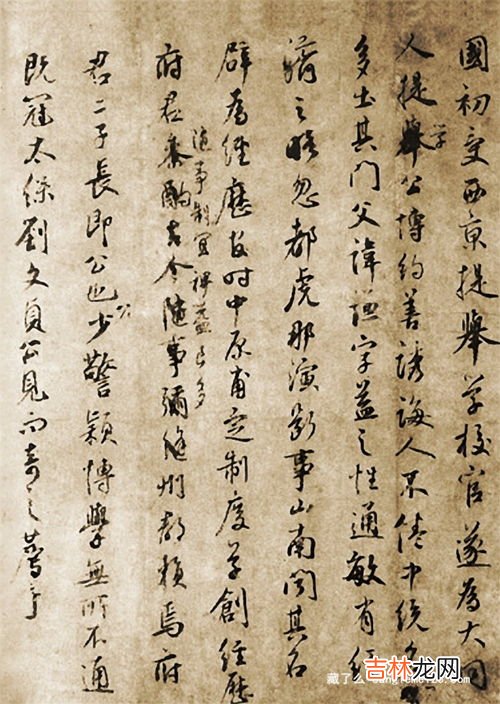 國初受西京提舉學校官遂為大同
人提舉学公博約善誘誨人不倦中統名
多出其門父諱字益之性通敏有經
濟之略忽都虎那演斷事山南聞其名
辟為經歷故时中原甫定制度草創經歷
隨事制宜裨益良多
府君叅酌古今隨事彌縫州郡賴焉府
君二子長即公也少公警穎博學無所不通
既冠太保劉文貞公見而奇之薦于
藏了么
吉林龙网